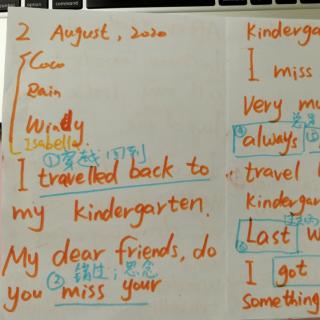 2 August, 2020
Coco
Rain
Windy
Isabella
①穿越 回到
I travelled back to
my kindergarten.
My dear friends, do
②错过；思念
you miss your
Kinderga
I miss
Very mu
always
travel
Kinderga
Last W
I got
something